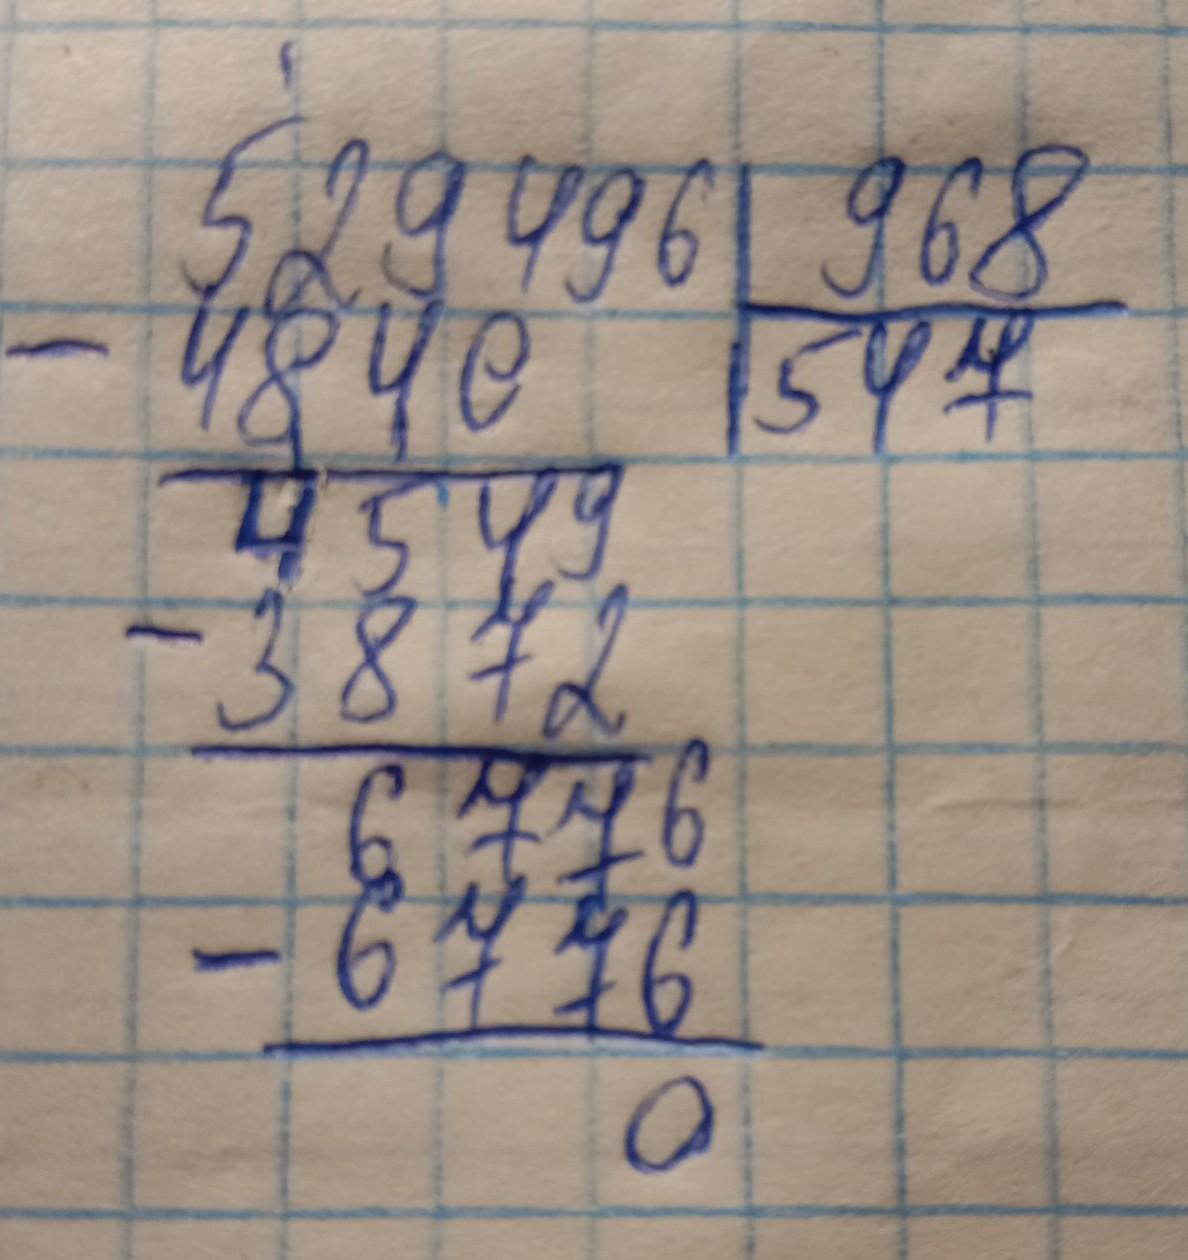 529496 968
- 4840 547
4549
- 3872
6776
- 6776
0